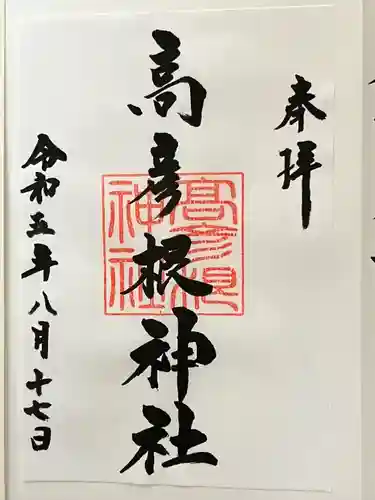 奉拝
高彦根神社
髙彦根
神社
令和五年八月十七日